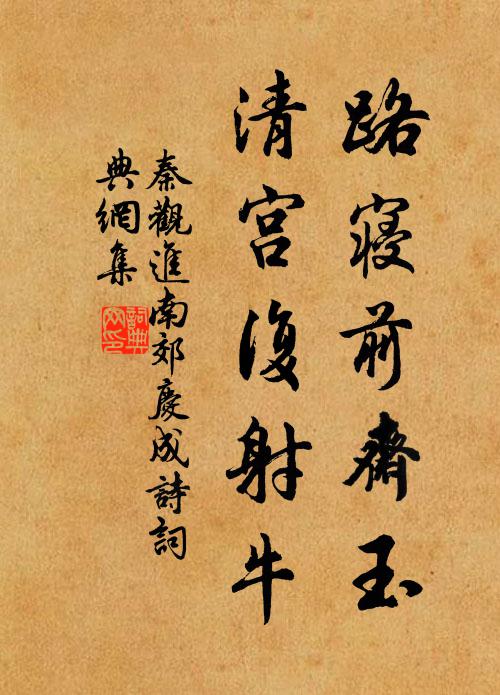 路寢前齋玉
清宮復射牛
秦觀進南郊慶成詩詞
典網集
詞典網印